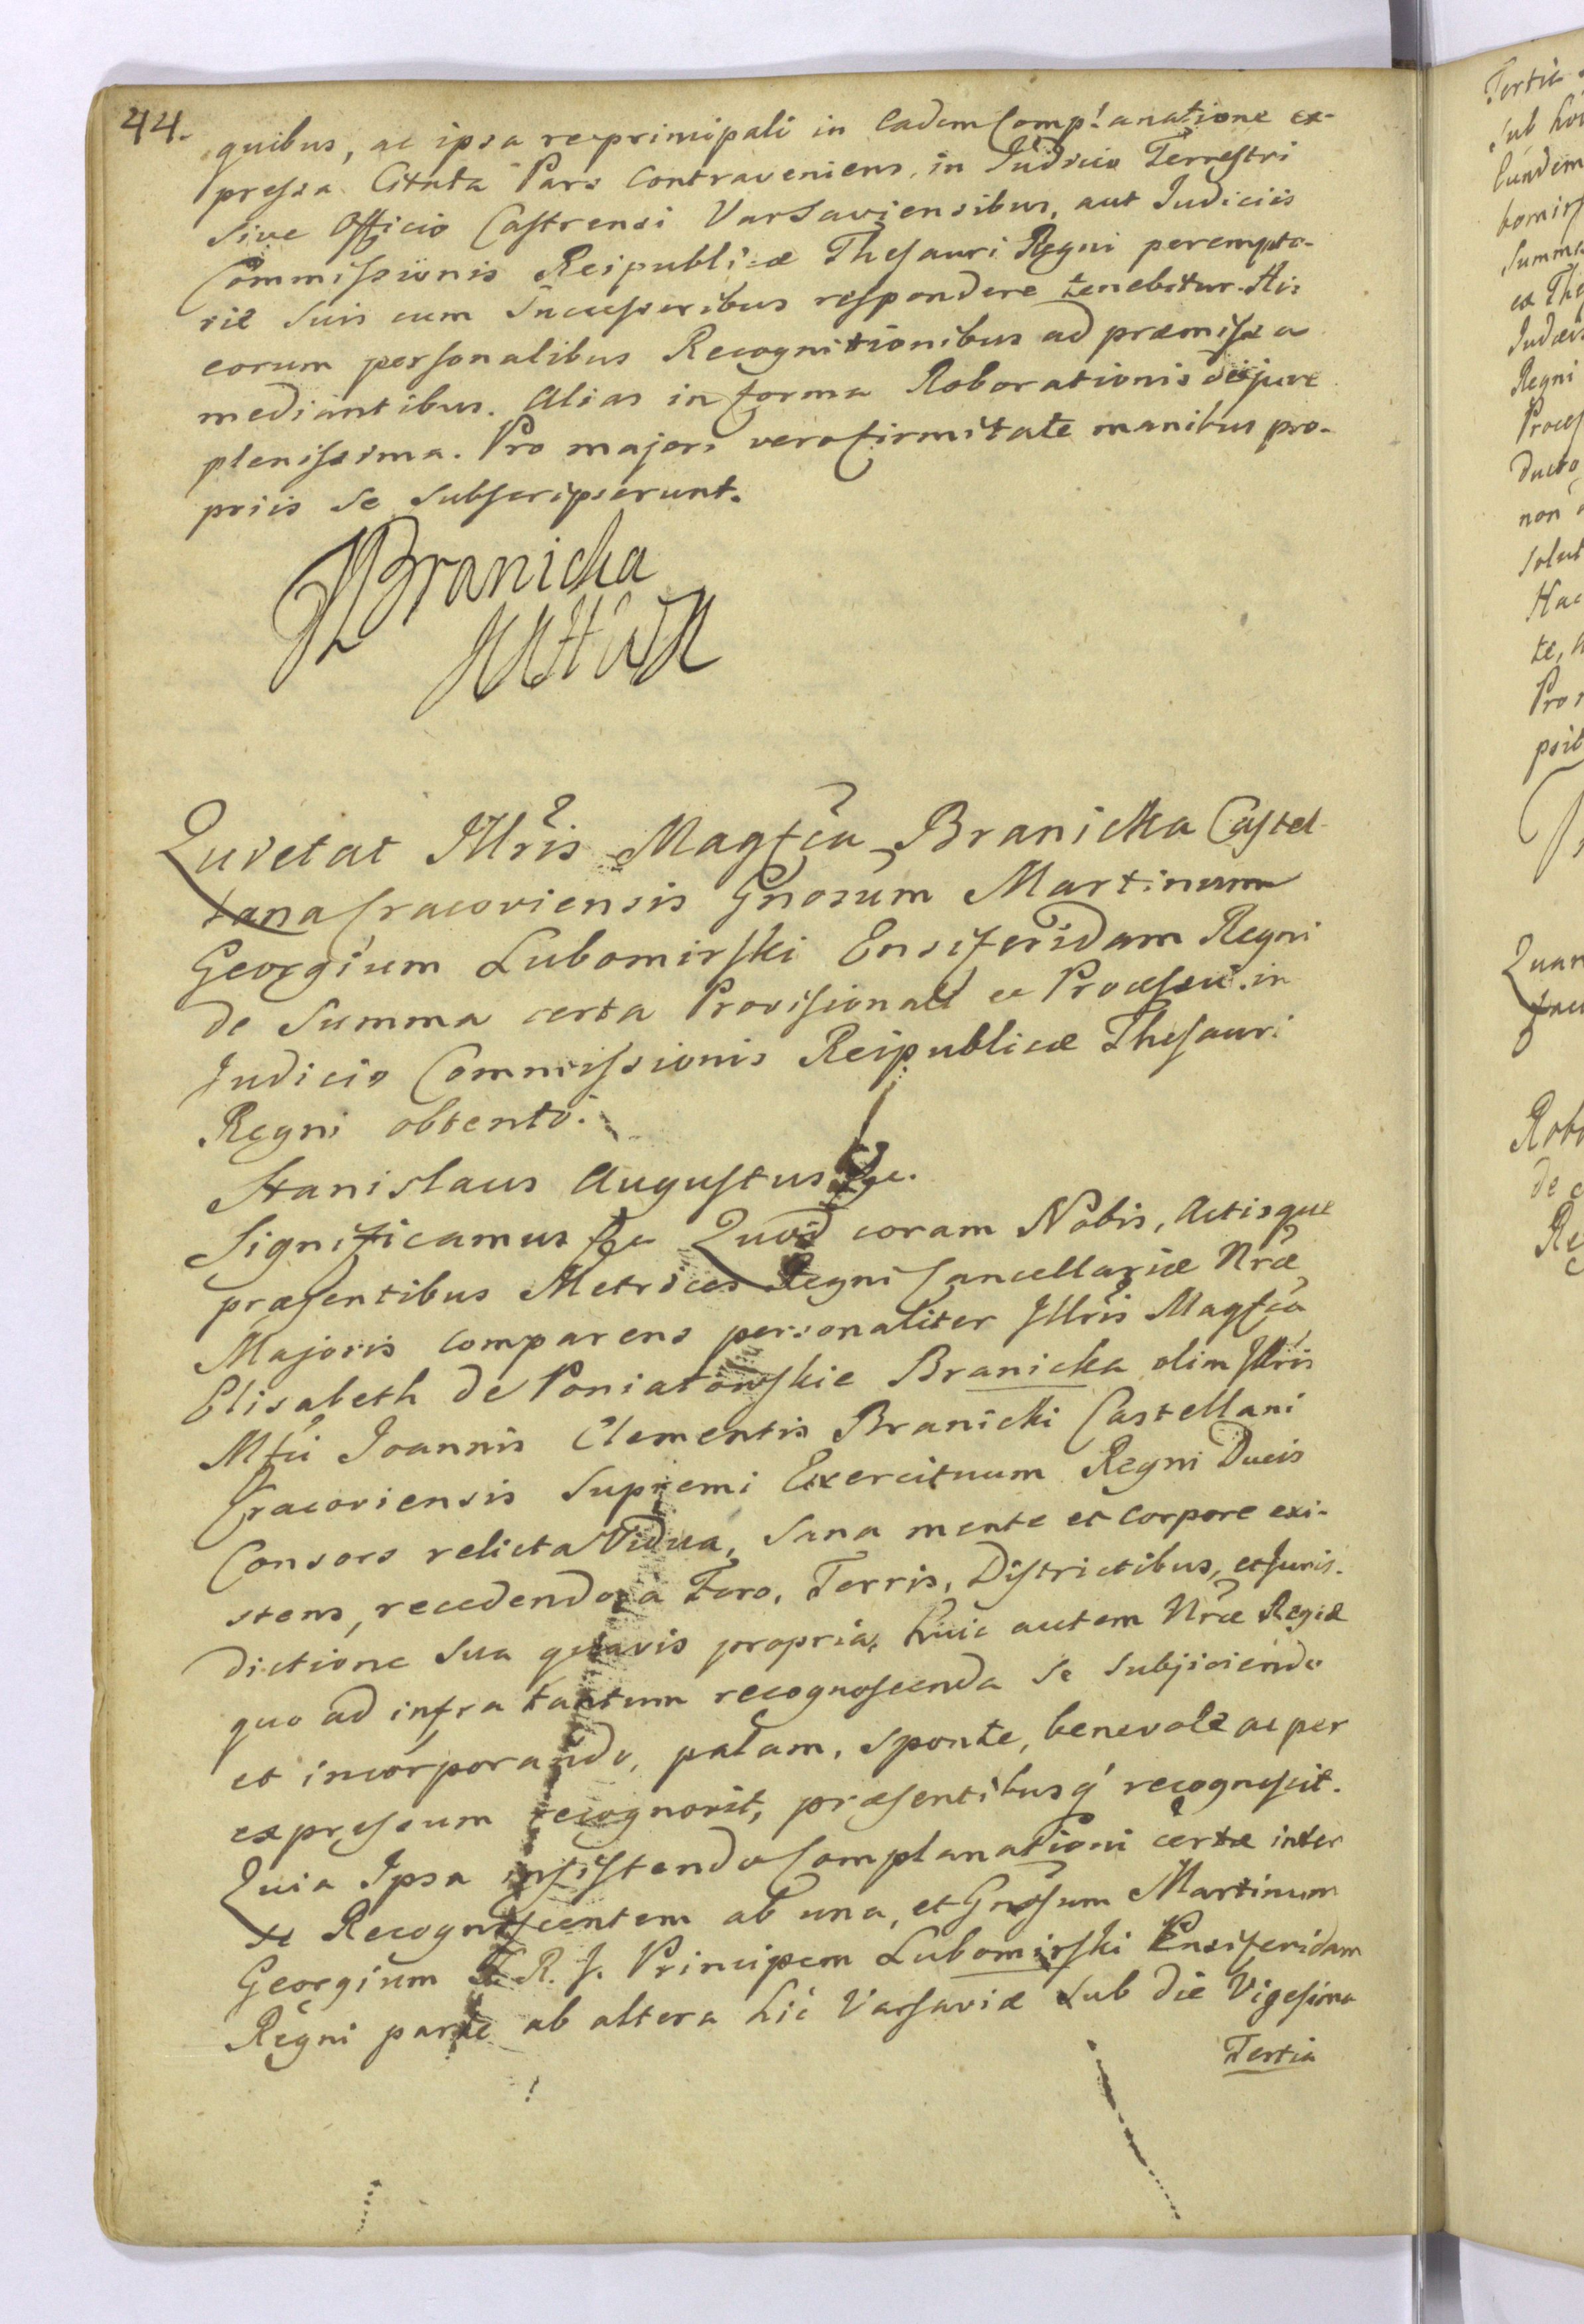 44.
quibus, ac ipsa reprincipali in Eadem Complanatione ex-
pressa. Citata Pars Contraveniens, in Judicio Terrestri
sive Officio Castrensi Varsaviensibus, aut Judiciis
Commissionis Reipublicæ Thesauri Regni perempto-
rie suis cum Successoribus respondere tenebitur. His
eorum personalibus Recognitionibus ad præmissa
mediantibus. Alias in forma Roborationis de jure
plenissima. Pro majori vero firmitate manibus pro-
priis se subscripserunt.
Branicka
Quietat Illris Magfca Branicka Castel-
lana Cracoviensis Gnosum Martinum
Georgium Lubomirski Ensiferidam Regni
de Summa certa Provisionali ex Processu in
Judicio Commissionis Reipublicæ Thesauri
Regni obtento.
Stanislaus Augustus &c.
Significamus &c Quod coram Nobis, Actisque
præsentibus Metrices Regni Cancellariæ Nræ
Majoris comparens personaliter Illris Magfca
Elisabeth de Poniatowskie Branicka olim Illris
Mfci Joannis Clementis Branicki Castellani
Cracoviensis Supremi Exercituum Regni Ducis
Consors relicta Vidua, sana mente et corpore exi-
stens, recedendo a Foro, Terris, Districtibus, et Juris-
dictione sua quavis propria, huic autem Nræ Regiæ
quo ad infra tantum recognoscenda se subjiciendo
et incorporando, palam, sponte, benevole ac per
expressum recognovit, præsentibusq' recognoscit.
Quia Ipsa insistendo Complanationi certæ inter
se Recognoscentem ab una, et Gnosum Martinum
Georgium S. R. J. Principem Lubomirski Ensiferidam
Regni parte ab altera hic Varsaviæ sub die Vigesima
Tertia